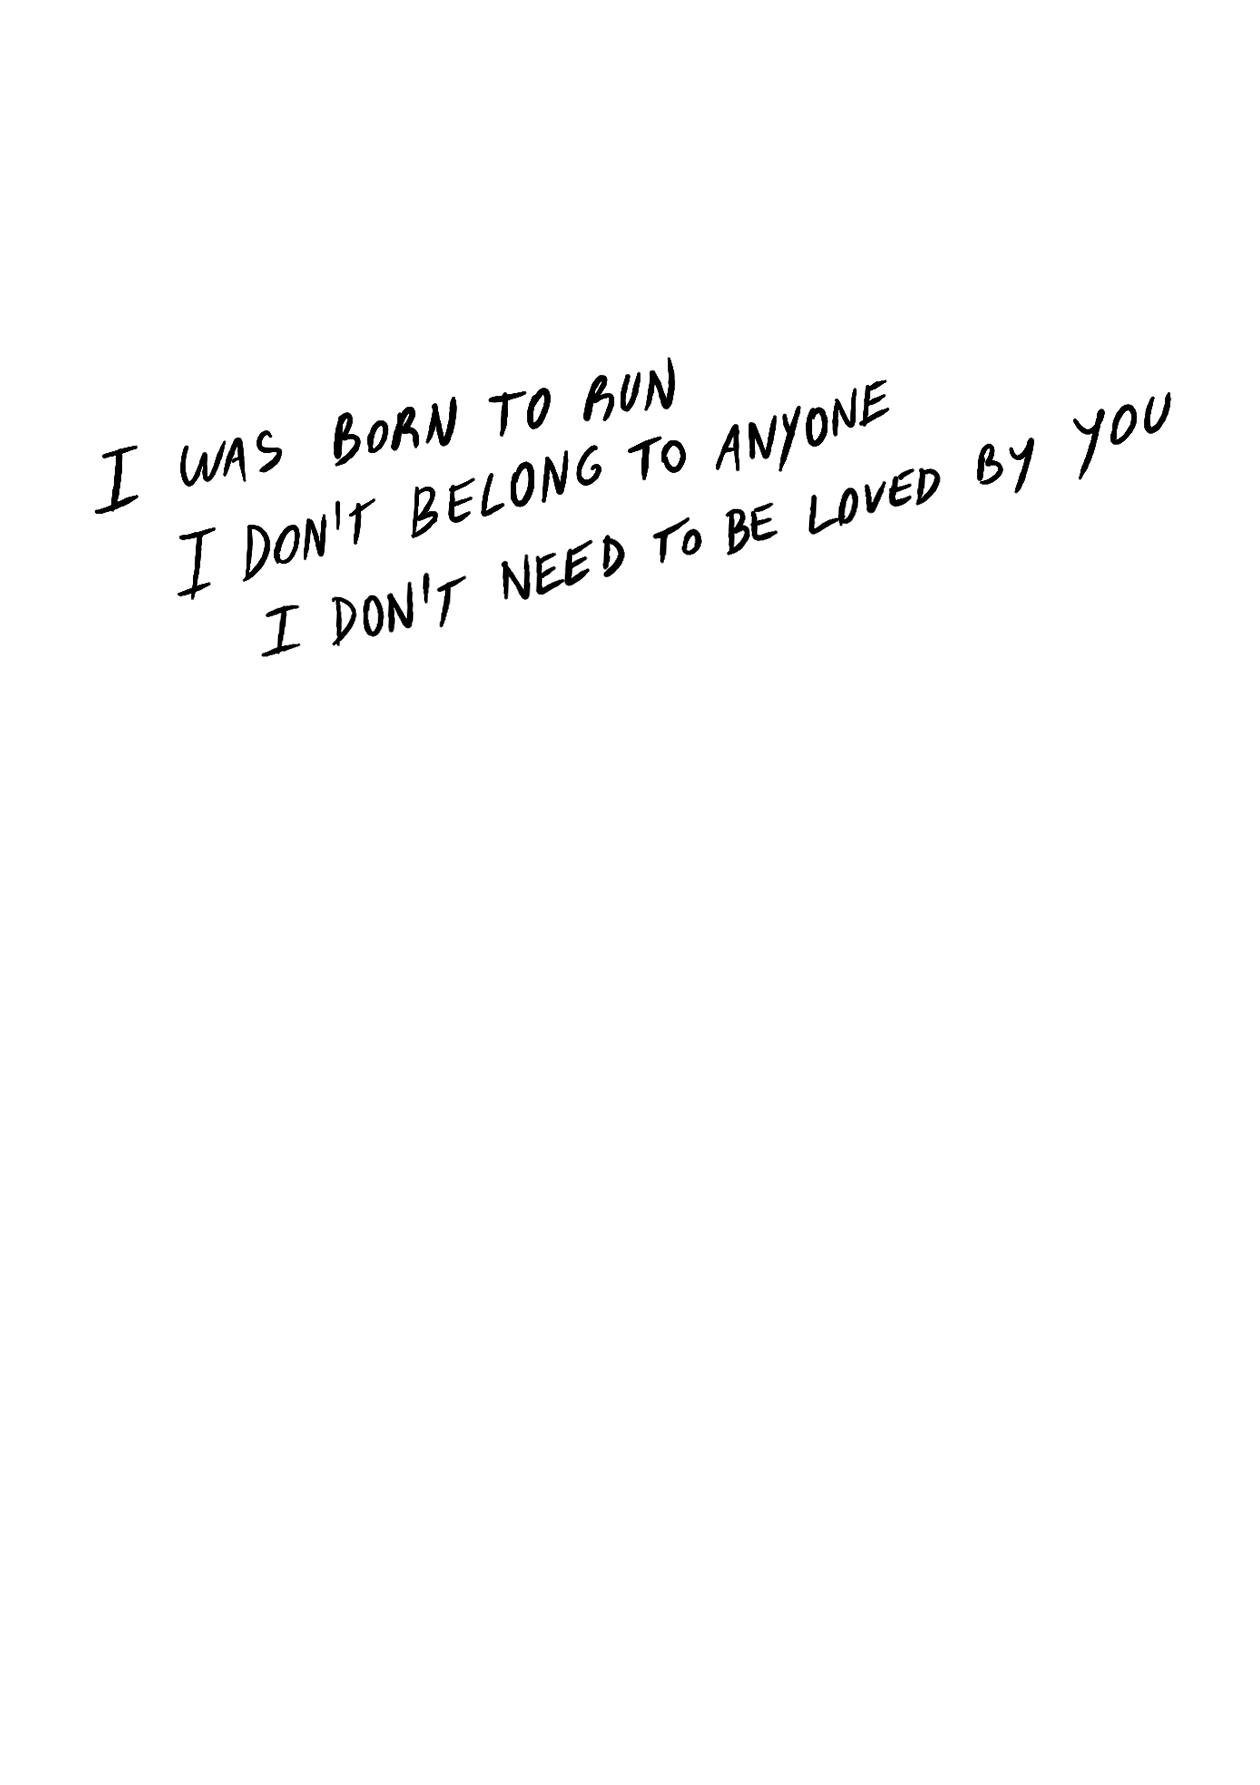 I WAS BORN TO RUN
I DON'T BELONG TO ANYONE
I DON'T NEED TO BE LOVED BY YOU